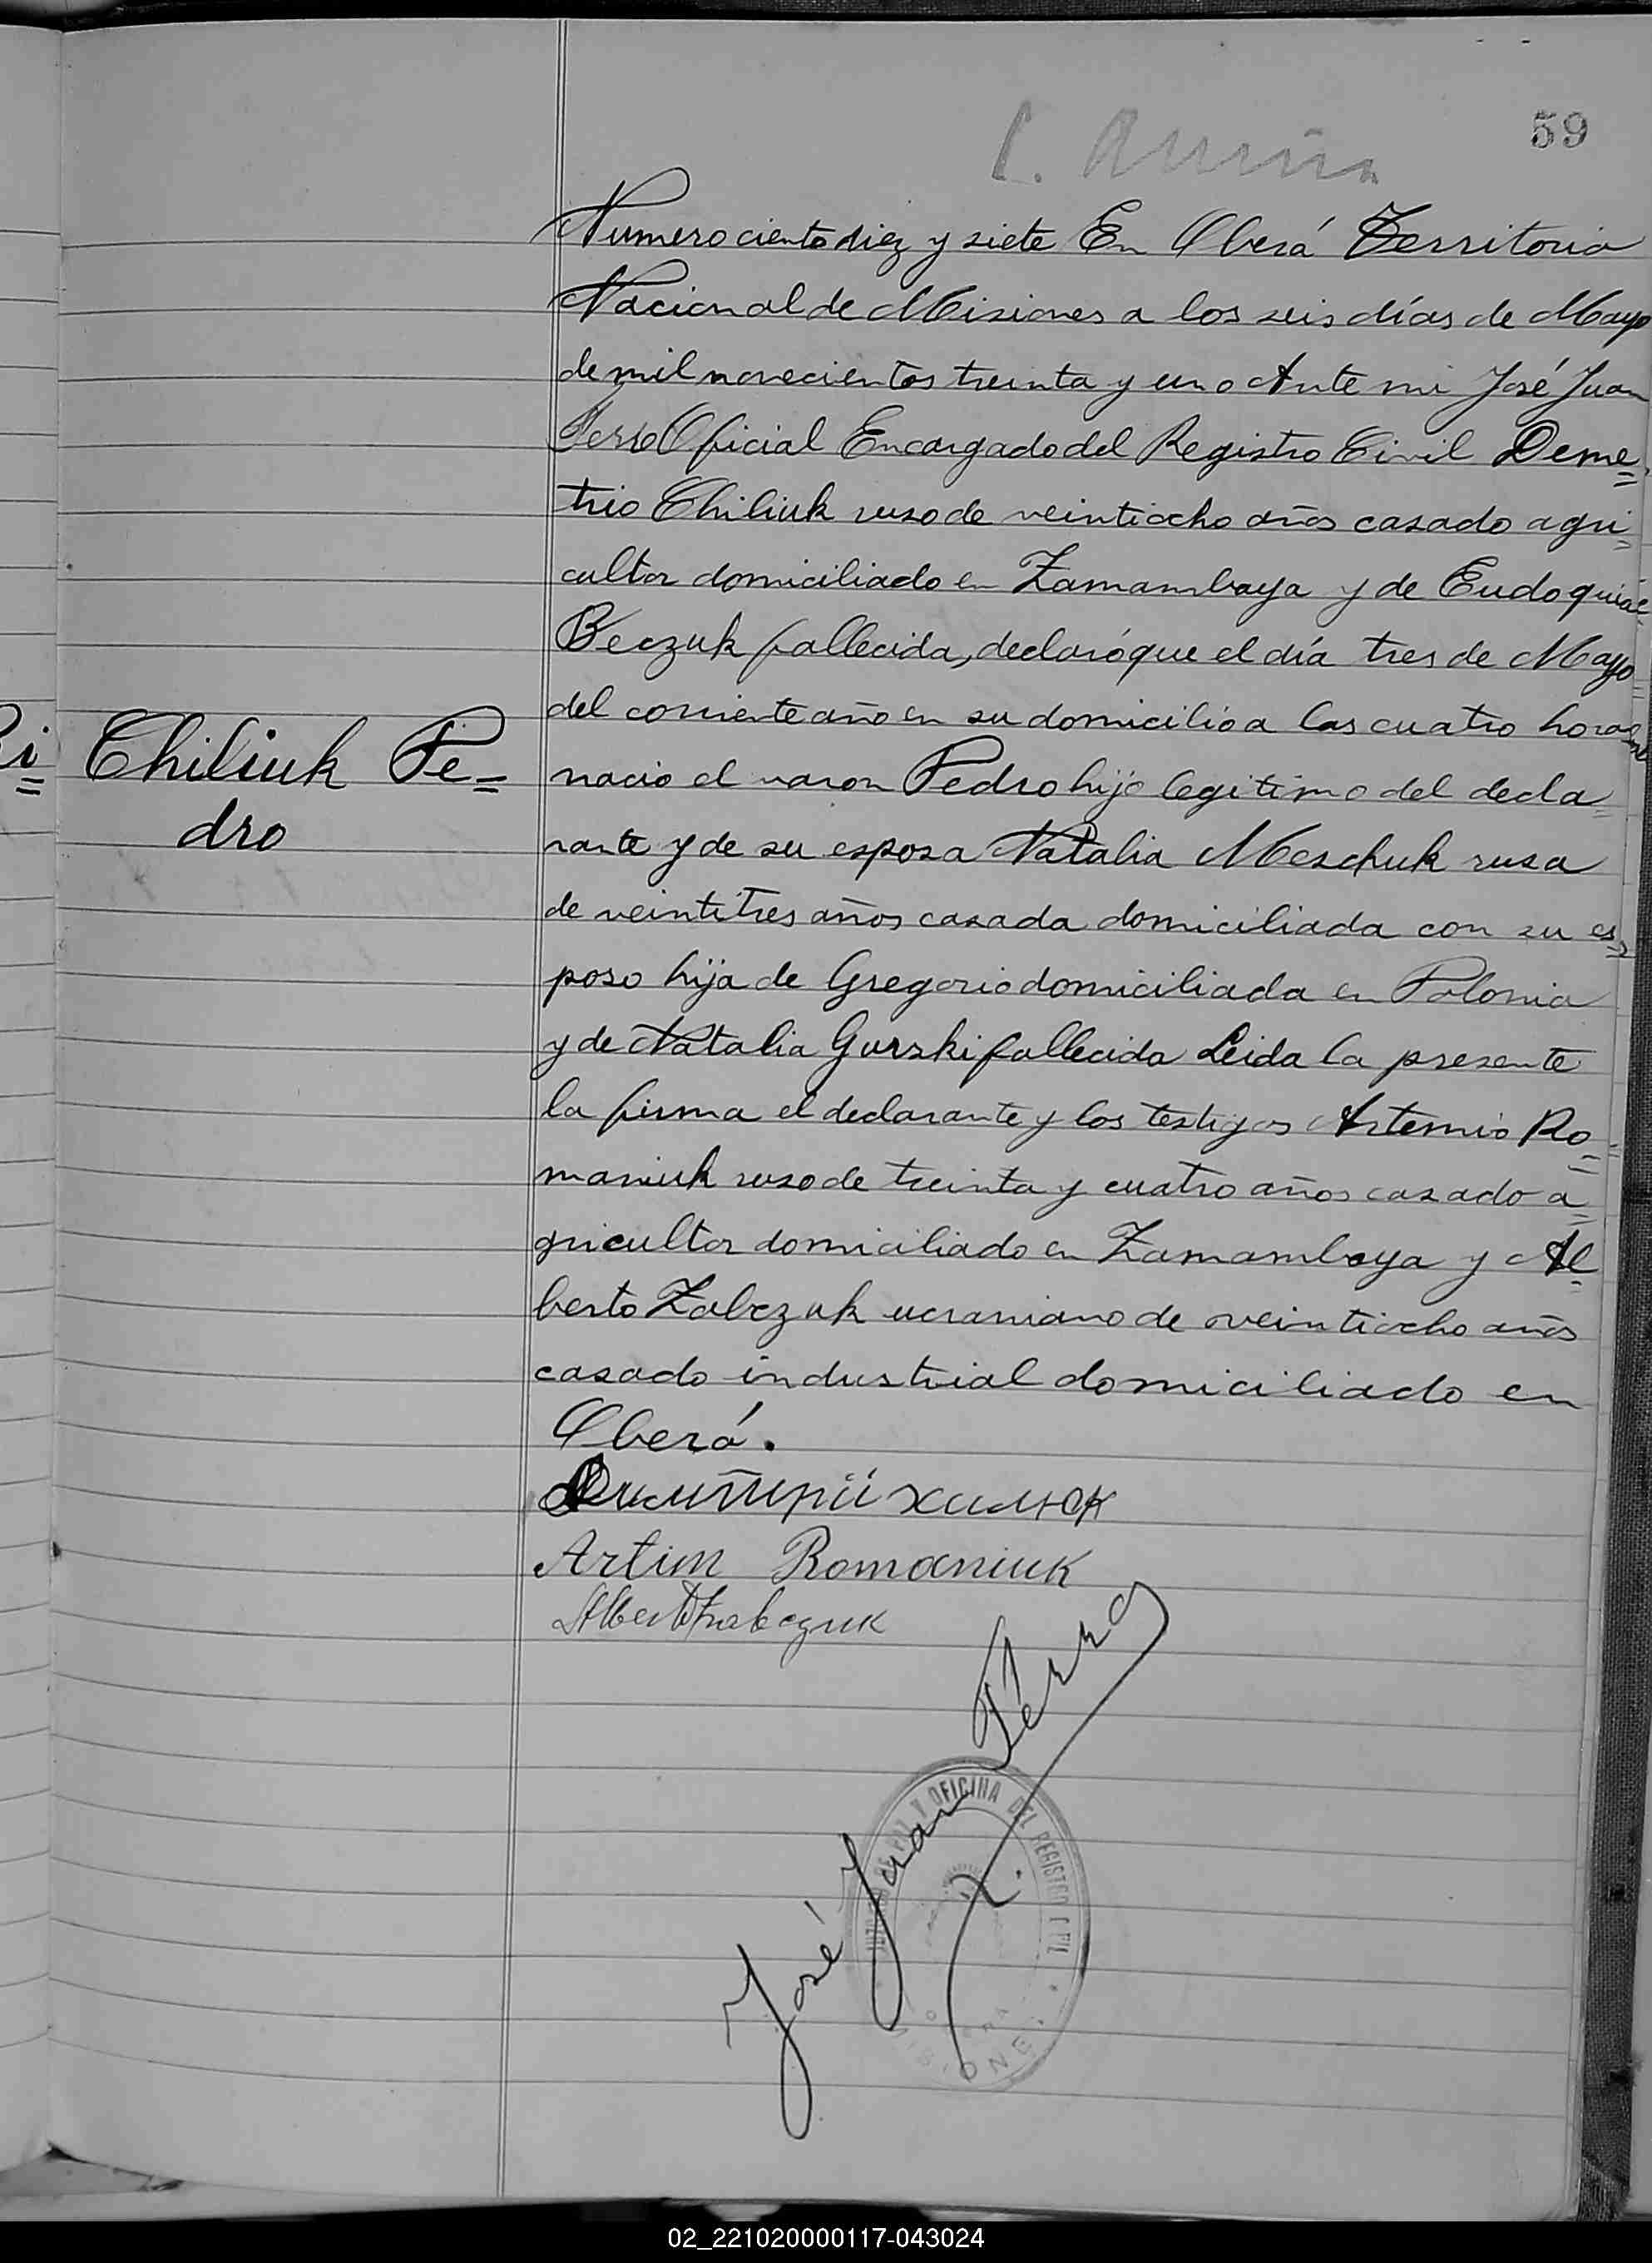 59
Numero ciento diez y siete En Oberá Territorio
Nacional de Misiones a los seis días de Mayo
de mil novecientos treinta y uno Ante mi José Juan
Ferro Oficial Encargado del Registro Civil Deme=
trio Chiliuk ruso de veintiocho años casado agri=
cultor domiciliado en Zamambaya y de Eudoquia
Beczuk fallecida, declaró que el día tres de Mayo
del corriente año en su domicilio a las cuatro horas
Chiliuk Pe=
dro
nacio el varon Pedro hijo legitimo del decla=
rante y de su esposa Natalia Meschuk rusa
de veintitres años casada domiciliada con su es=
poso hija de Gregorio domiciliada en Polonia
y de Natalia Gurski fallecida Leida la presente
la firma el declarante y los testigos Artemio Ro=
maniuk ruso de treinta y cuatro años casado a=
gricultor domiciliado en Zamambaya y Al=
berto Zabczuk ucraniano de veintiocho años
casado industrial domiciliado en
Oberá.
Димитрій Хилюк
Artim Romaniuk
José Juan Ferro
Y OFICINA DEL REGISTRO CIVIL
MISIONES
02_221020000117-043024